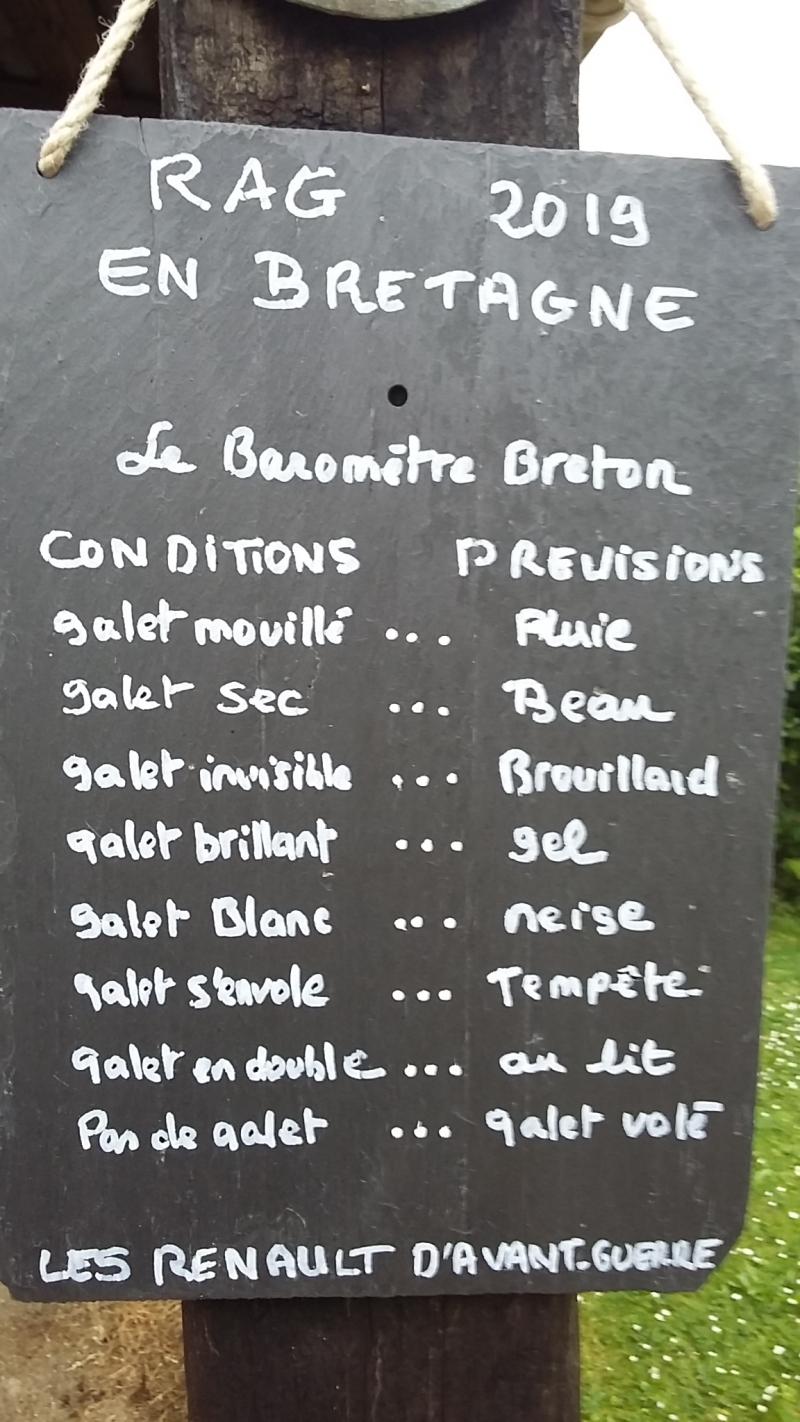 RAG 2019
EN BRETAGNE
Le Baromètre Breton
CONDITIONS PREVISIONS
galet mouillé ... Pluie
galet sec ... Beau
galet invisible ... Brouillard
galet brillant ... gel
galet Blanc ... neige
galet s'envole ... Tempête
galet en double ... au lit
Pas de galet ... galet volé
LES RENAULT D'AVANT-GUERRE